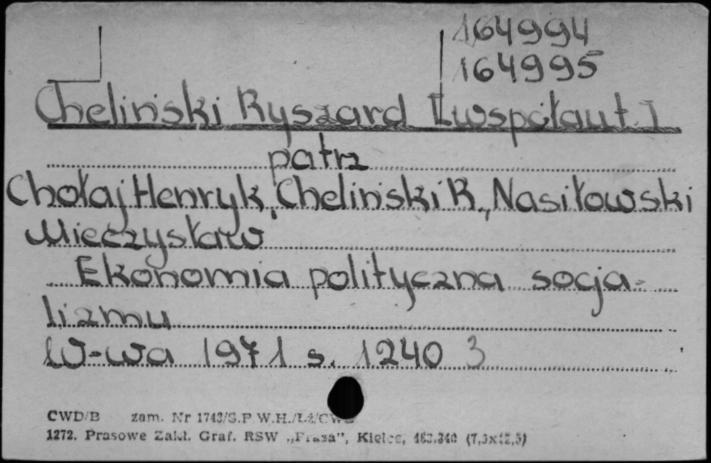 164994
164995
Cheliński Ryszard [współaut.]
patrz
Chołaj Henryk, Cheliński R., Nasiłowski
Mieczysław
Ekonomia polityczna socja-
lizmu
W-wa 1971 s. 1240 3
CWD/B zam. Nr 1743/S.P W.H./Łź/CWD
1272. Prasowe Zakł. Graf. RSW „Prasa”, Kielce, (7,5x12,5)